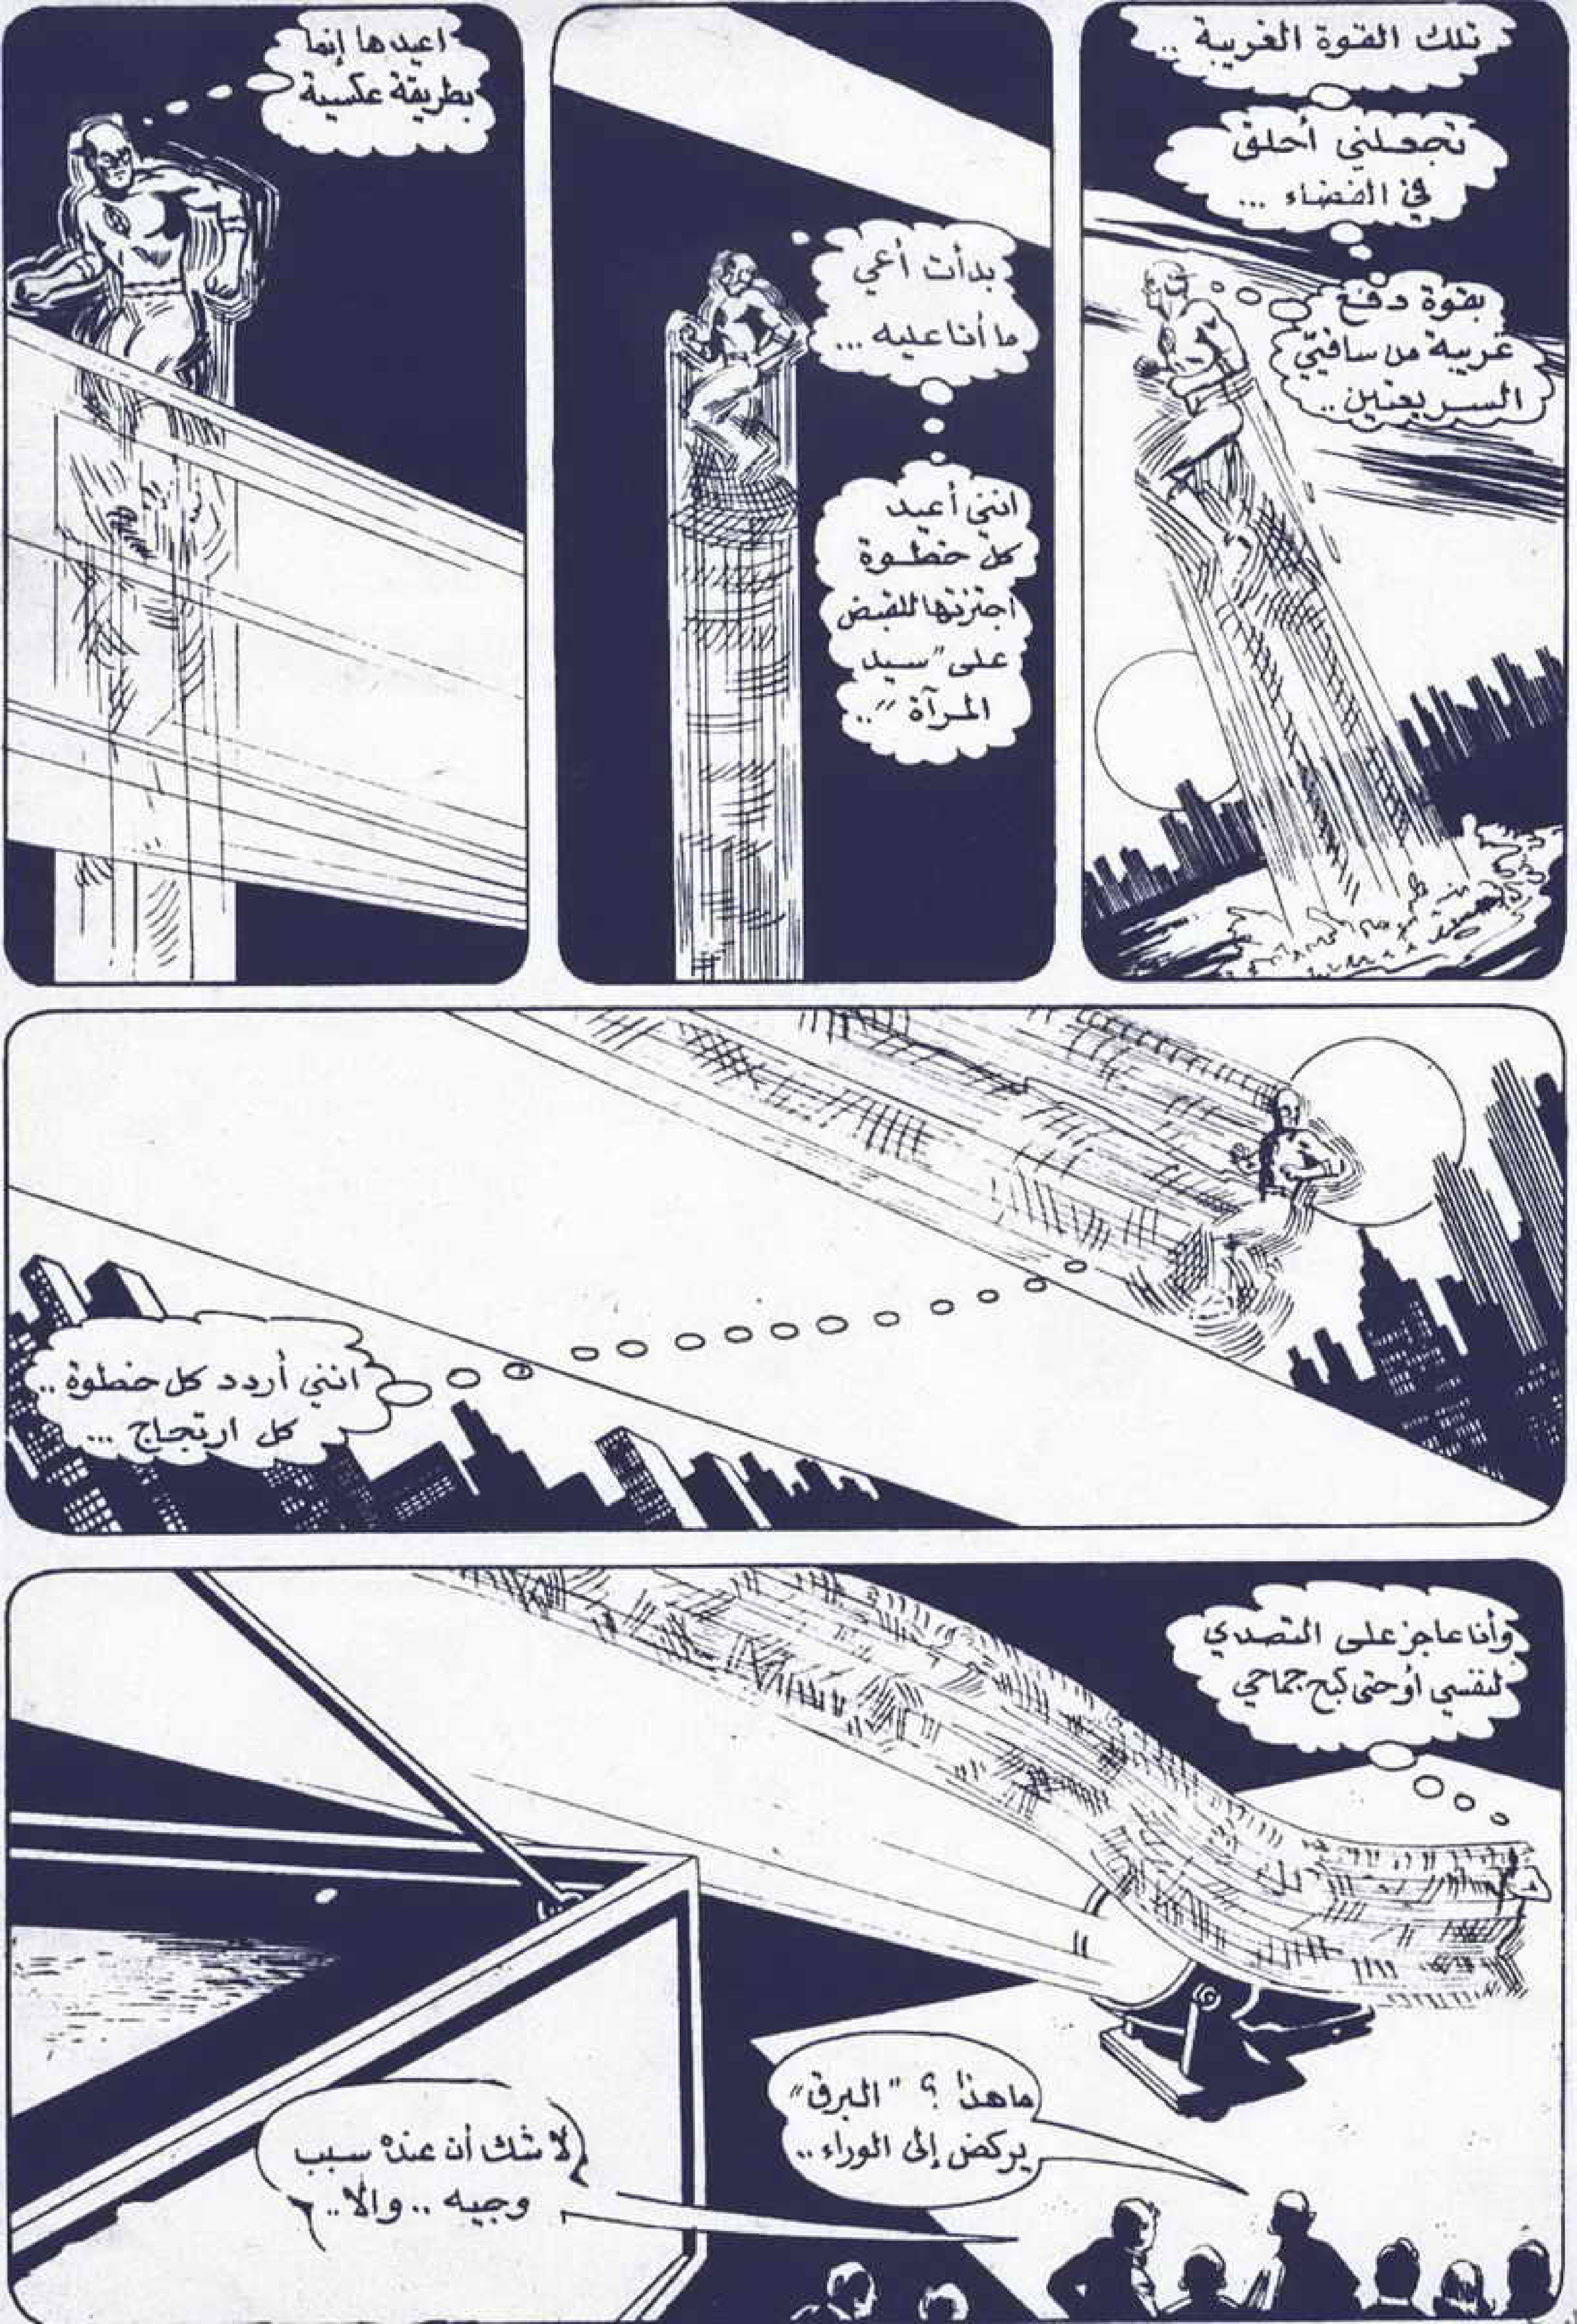 تلك القوة الغريبة ..
تجعلني أحلق
في الفضاء ...
بقوة دفع
غريبة من ساقيّ
السريعتين ..
بدأت أعي
ما أنا عليه ...
انني أعيد
كل خطوة
اجتزتها للقبض
على "سيد
المرآة "..
اعيدها إنما
بطريقة عكسية
انني أردد كل خطوة ..
كل ارتجاج ...
وأنا عاجز على التصدي
لنفسي أو حتى كبح جماحي
ماهذا ؟ "البرق"
يركض إلى الوراء ..
لا شك أن عنده سبب
وجيه .. والا ..